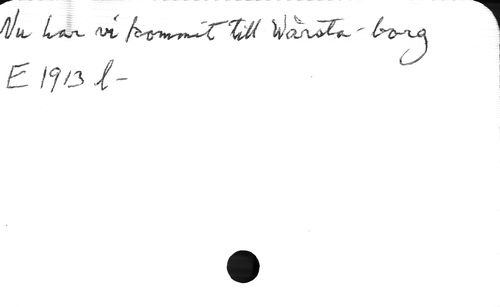 Nu har vi kommit till Wårsta-borg
E 1913 l-